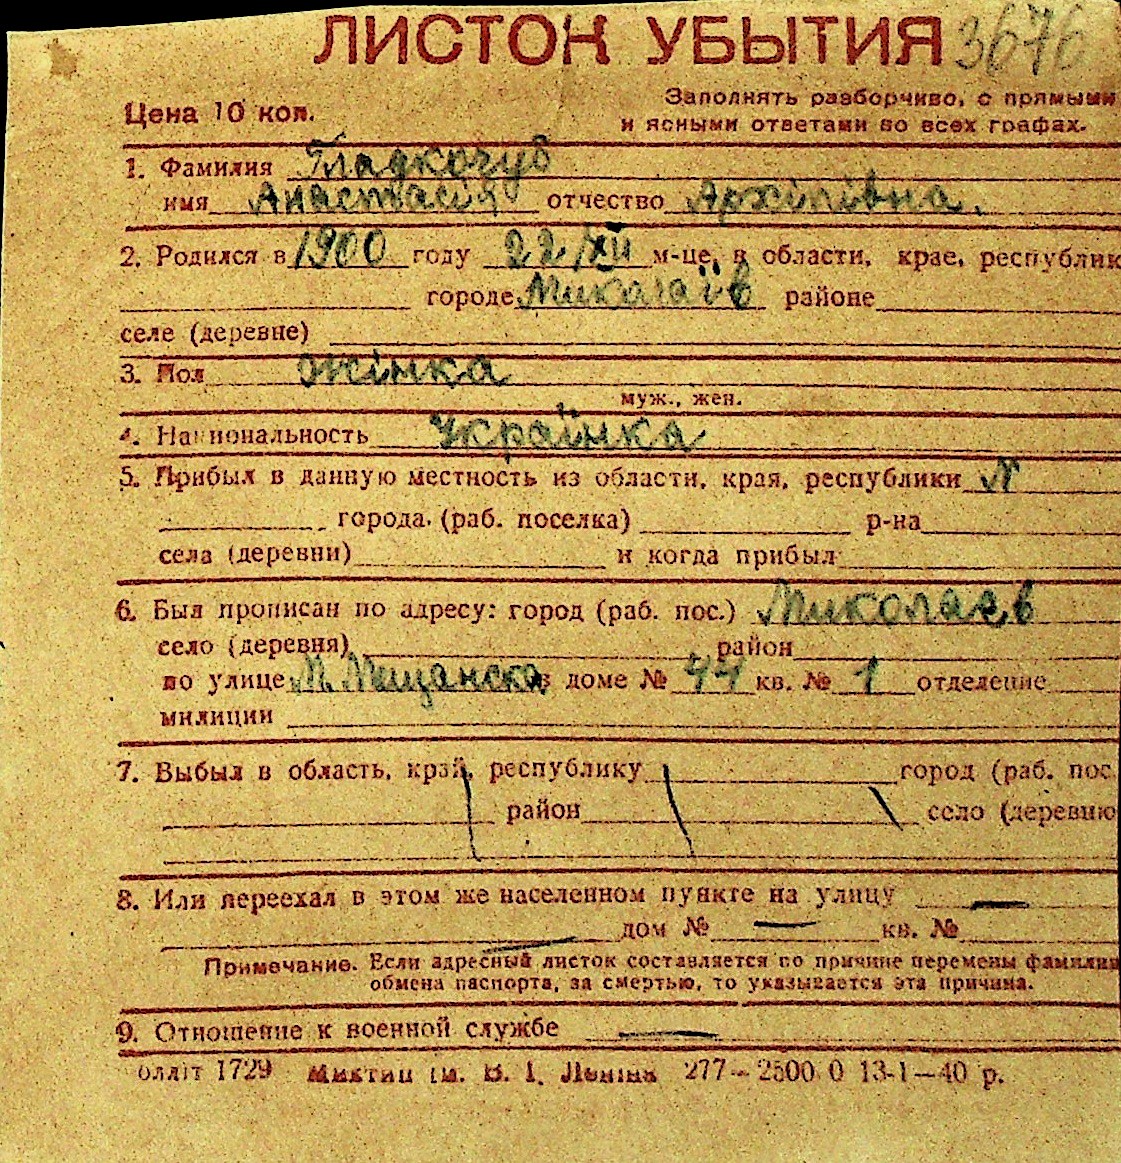 ЛИСТОК УБЫТИЯ 3676
Цена 10 коп.
Заполнять разборчиво, с прямыми
и ясными ответами во всех графах.
1. Фамилия Гладкочуб
имя Анастасія отчество Архіпівна.
2. Родился в 1900 году 22/XII м-це, в области, крае, республик
городе Миколаїв районе
селе (деревне)
3. Пол жінка
муж., жен.
4. Национальность Українка
5. Прибыл в данную местность из области, края, республики
города (раб. поселка) р-на
села (деревни) и когда прибыл
6. Был прописан по адресу: город (раб. пос.) Миколаев
село (деревня) район
по улице М. Мещанска в доме № 44 кв. № 1 отделение
милиции
7. Выбыл в область, край, республику город (раб. пос.
район село (деревню
8. Или переехал в этом же населенном пункте на улицу —
дом № — кв. №
Примечание. Если адресный листок составляется по причине перемены фамилии
обмена паспорта, за смертью, то указывается эта причина.
9. Отношение к военной службе —
олліт 1729 ім. В. І. Леніна 277—2500 0 13-1—40 р.